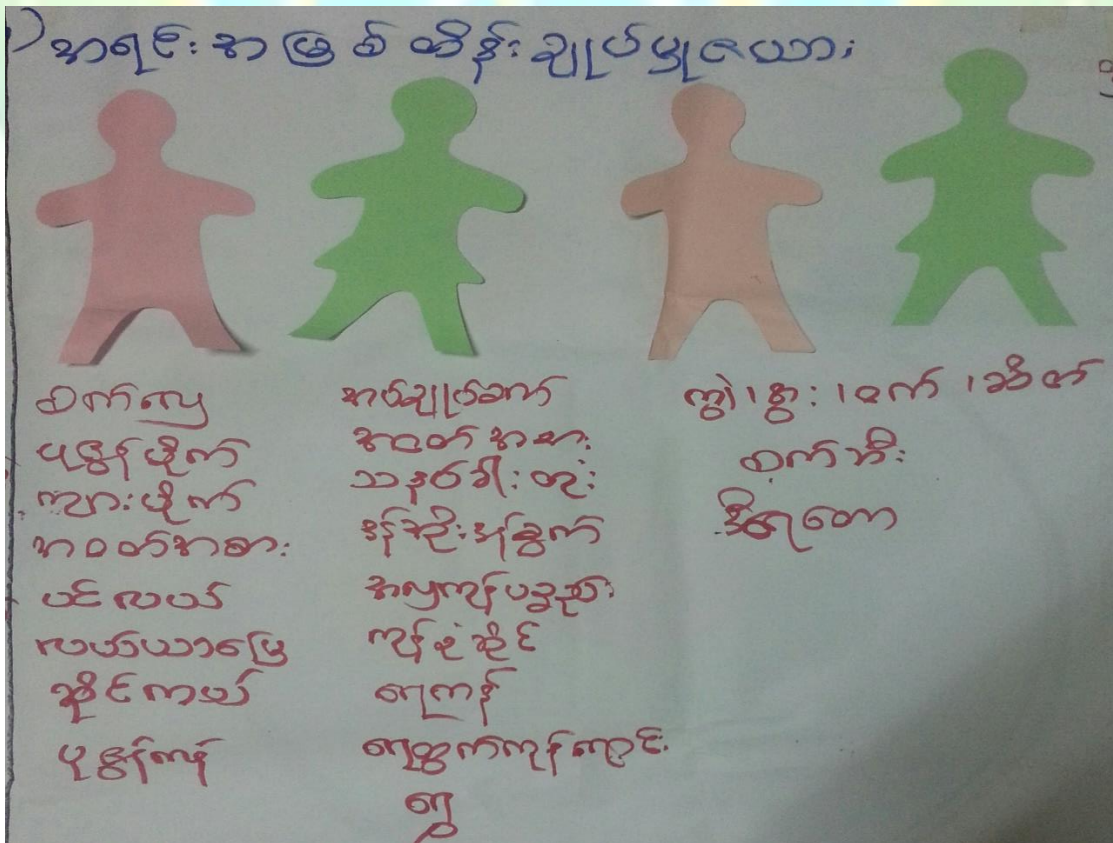 အရင်းအမြစ်ထိန်းချုပ်မှုဇယား
စက်လှေ
ပုဇွန်ပိုက်
ကျားပိုက်
အဝတ်အစား
ပင်လယ်
လယ်ယာမြေ
ဆိုင်ကယ်
ပုဇွန်ကန်
အပ်ချုပ်စက်
အဝတ်အစား
သနပ်ခါး တုံး
အလှကုန်ပစ္စည်း
ကုန်စုံဆိုင်
ရေကန်
ရေထွက်ကုန်
ရွှေ
ကျွဲ၊ နွား၊ ဝက်၊ ဆိတ်
စက်ဘီး